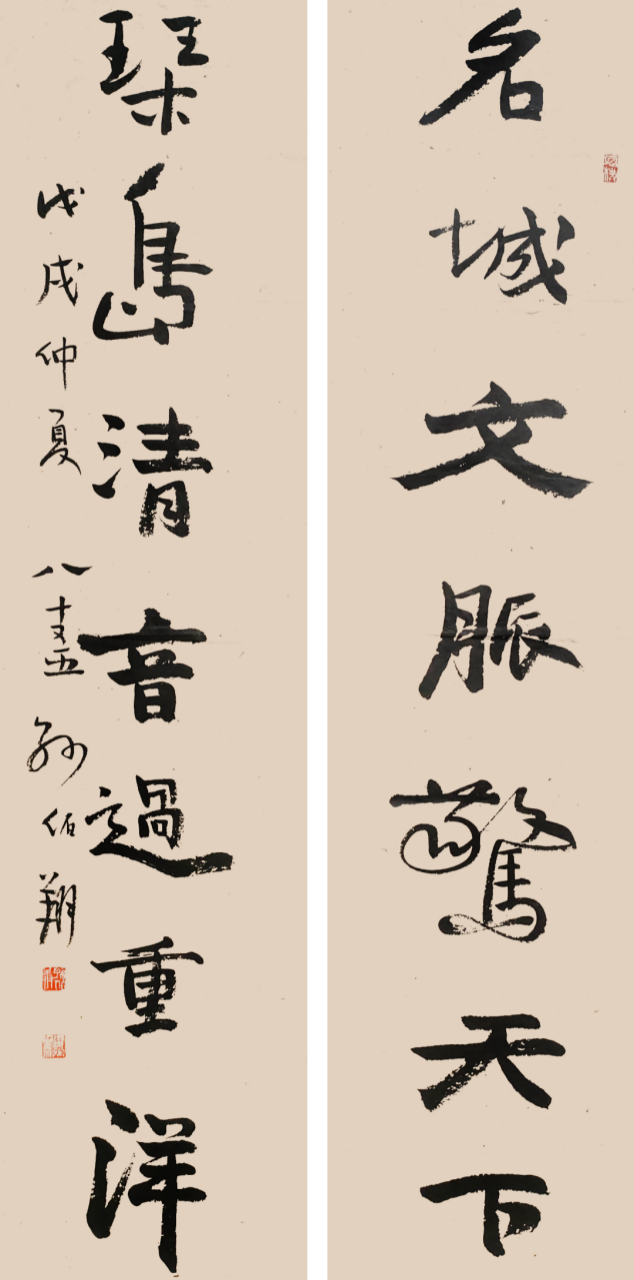 名城文脈驚天下
琹島清音過重洋
戊戌仲夏 八十又五 孫伯翔